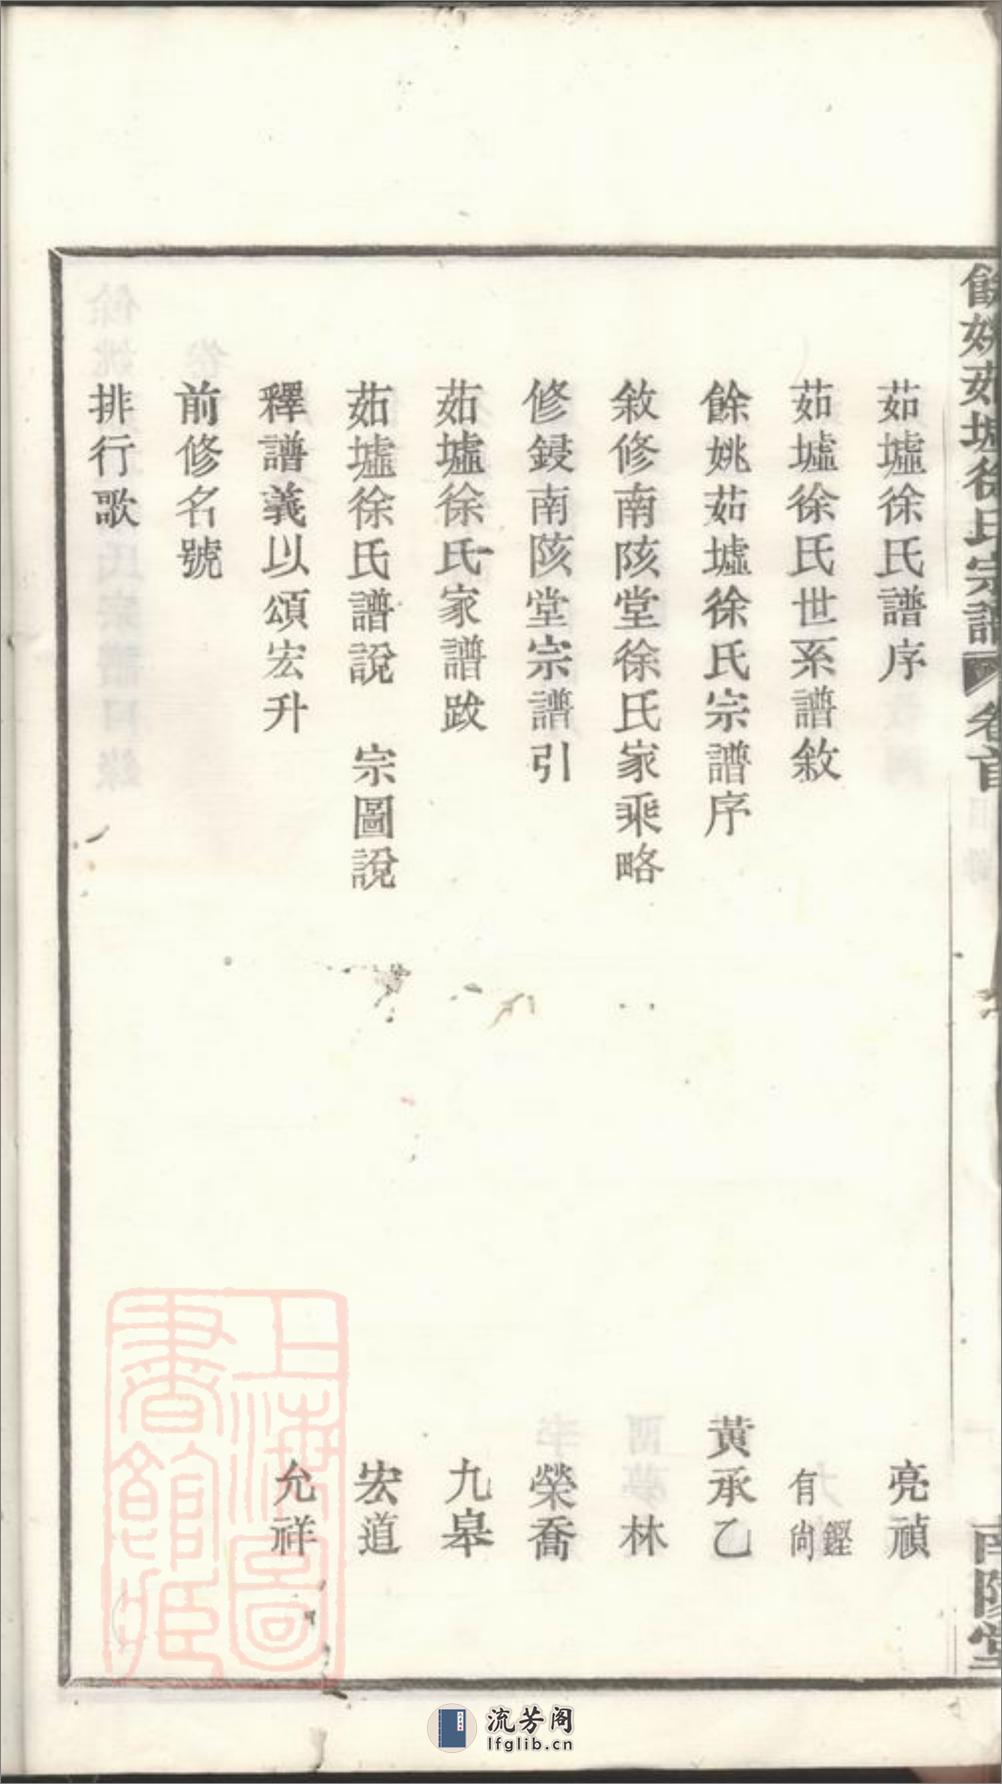 餘姚茹墟徐氏宗譜 卷首
南陔堂
茹墟徐氏譜序 亮禎
茹墟徐氏世系譜敘 有尙 鏗
餘姚茹墟徐氏宗譜序 黃承乙
敘修南陔堂徐氏家乘略 林
修鋟南陔堂宗譜引 榮喬
茹墟徐氏家譜跋 九皋
茹墟徐氏譜說 宗圖說 宏道
釋譜義以頌宏升 允祥
前修名號
排行歌
上海圖書館藏
流芳阁
lfglib.cn